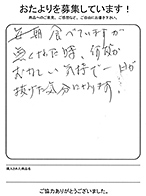 おたよりを募集しています！
商品へのご意見、ご感想など、ご自由にお書き下さい。
毎朝食べていますが
無くなった時、何故か
むなしい気持で一日が
抜けた気分になります！
購入された商品名
ご協力ありがとうございました。